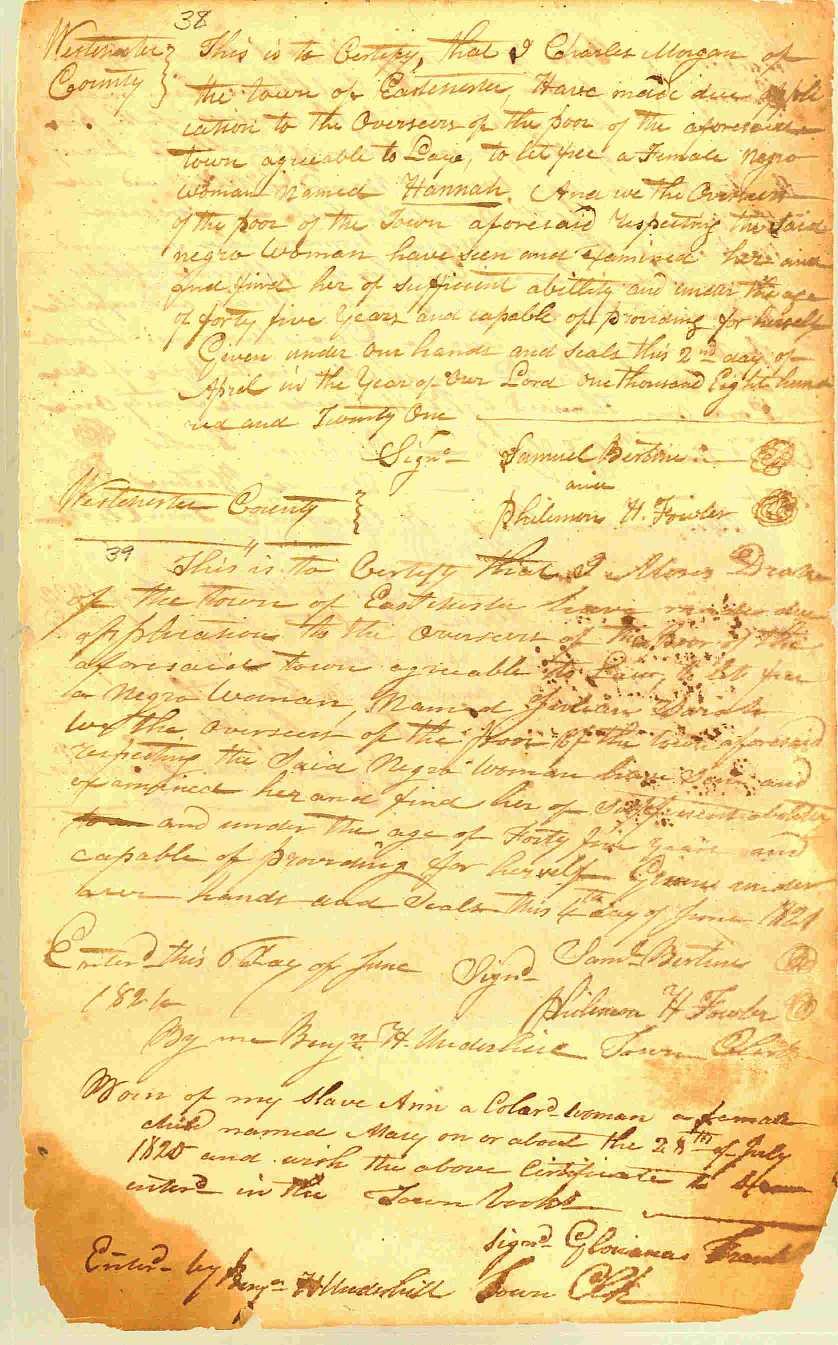 38
Westchester } This is to Certify, that I Charles Morgan of
County } the town of Eastchester, Have made due appli
cation to the Overseers of the poor of the aforesaid
town agreeable to Law, to let free a Female Negro
Woman Named Hannah. And we the Overseers
of the poor of the Town aforesaid respecting the said
negro Woman have seen and examined her and
find her of sufficient abillity and under the age
of forty five Years and capable of providing for herself
Given under Our hands and seals this 2nd day of
April in the Year of Our Lord One thousand Eight hund
red and Twenty One
Signd Samuel Bertine
and
Westchester County } Philemon H. Fowler
39
This is to Certify that I Moses Drake
of the town of Eastchester have made due
application to the Overseers of the Poor of the
aforesaid town agreeable to Law, to let free
a Negro Woman, Named
We the Overseers of the poor of the town aforesaid
respecting the Said Negro Woman have Seen and
examined her and find her of sufficient abillity
and under the age of Forty five years and
capable of providing for herself Given under
our hands and Seals this 4th day of June 1821
Enterd this 6 Day of June Signd Saml Bertine
182 Philemon H Fowler
By me Benjn H. Underhill Town Clerk
Born of my slave Ann a Colard woman a female
child named Mary on or about the 28th of July
1820 and wish the above Certificate to
enterd in the Town books
signd Glorianas Frank
Enterd by Benjn H Underhill Town Clk